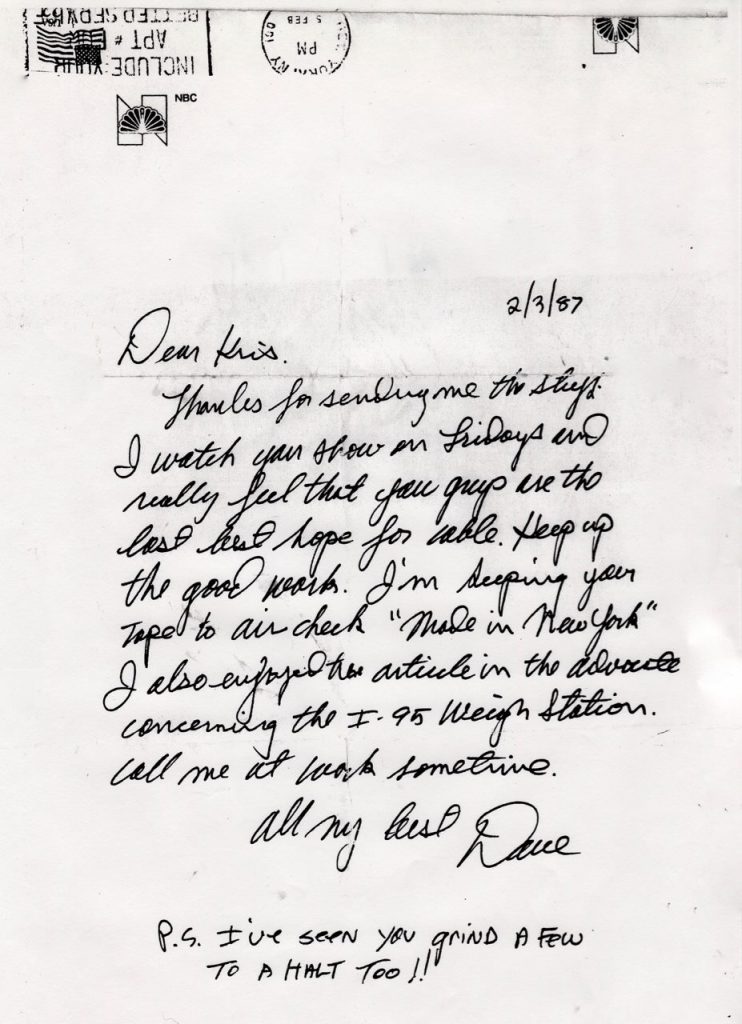 BETTER SERV
APT #
INCLUDE YOUR
NEW YORK, NY 100
PM
5 FEB
NBC
2/3/87
Dear Kris.
Thanks for sending me the stuff.
I watch your show on Fridays and
really feel that you guys are the
last best hope for cable. Keep up
the good work. I'm keeping your
tape to air check "Made in New York"
I also enjoyed the article in the advocate
concerning the I-95 Weigh Station.
Call me at work sometime.
All my best Dave
P.S. I'VE SEEN YOU GRIND A FEW
TO A HALT TOO!!